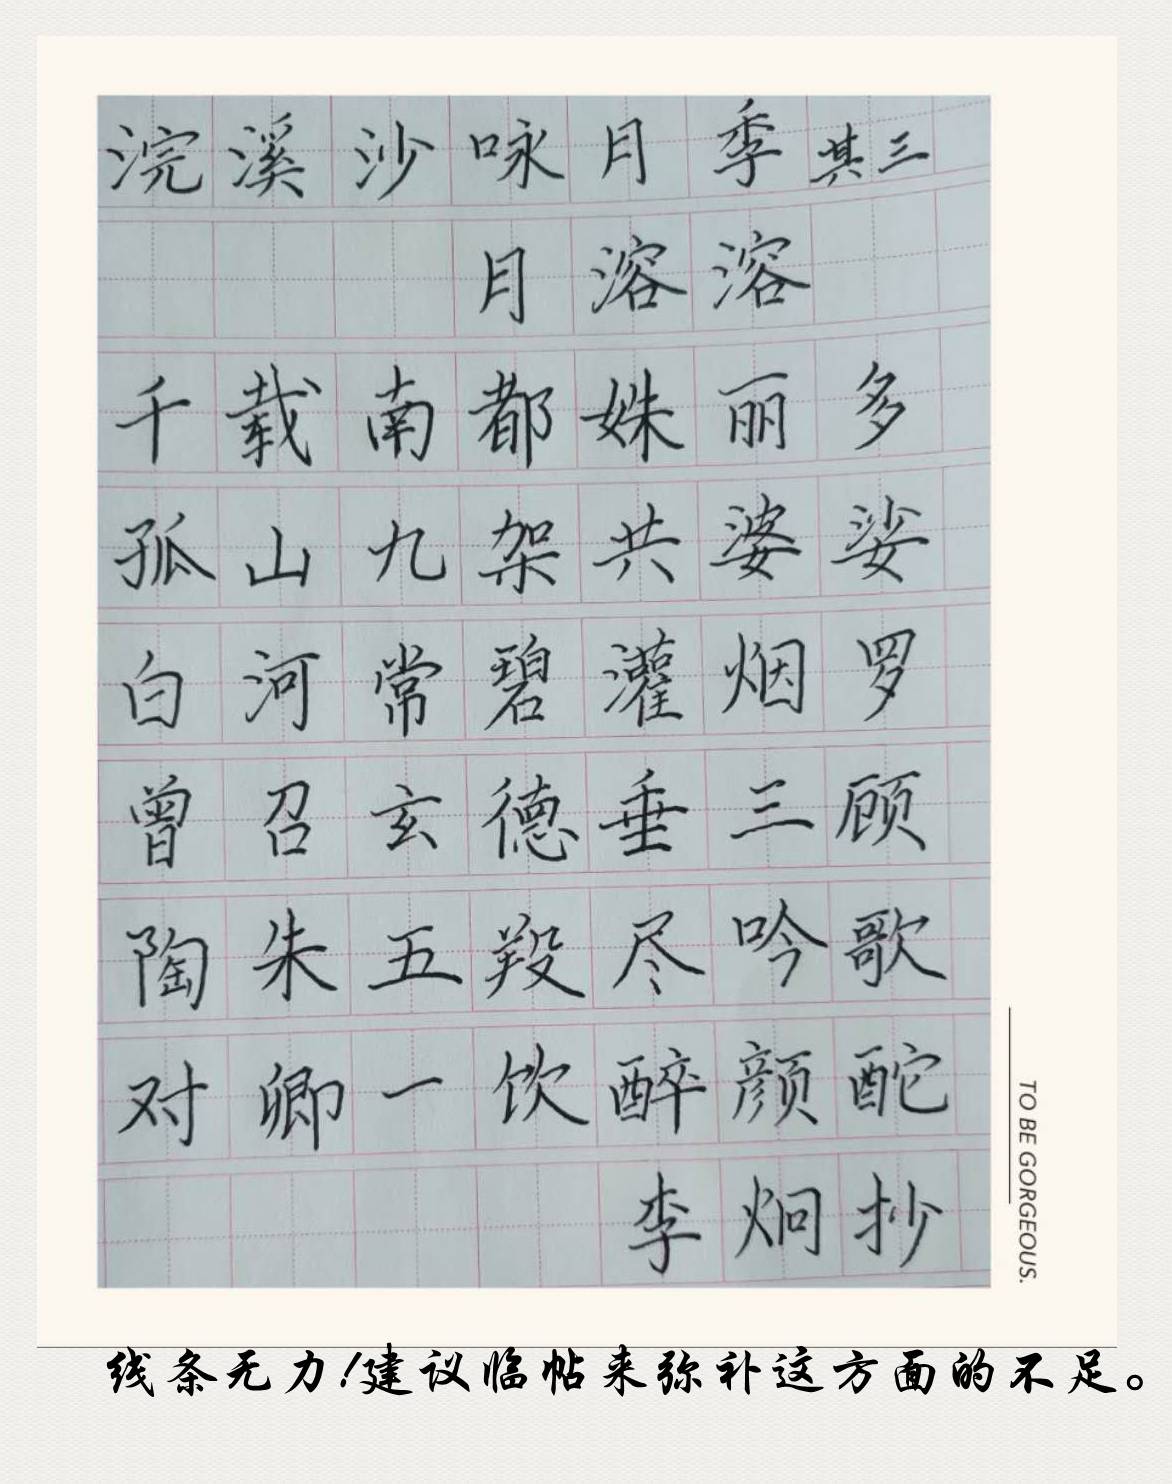 浣溪沙咏月季其三
月溶溶
千载南都姝丽多
孤山九架共婆娑
白河常碧灌烟罗
曾召玄德垂三顾
陶朱五羖尽吟歌
对卿一饮醉颜酡
李炯抄
TO BE GORGEOUS.
线条无力!建议临帖来弥补这方面的不足。